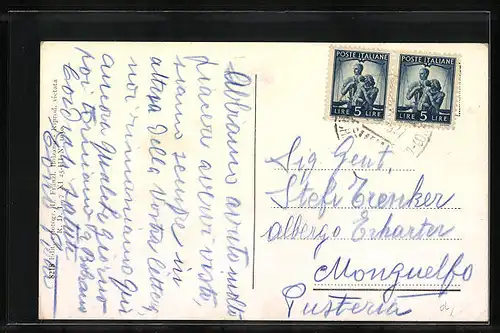 Abbiamo avuto molto
piacere avervi visto,
siamo sempre in
attesa della vostra lettera
noi rimaniamo qui
ancora qualche giorno
poi torniamo a Bolzano
Cordiali saluti
POSTE ITALIANE
LIRE 5 LIRE
POSTE ITALIANE
LIRE 5 LIRE
Sig. Gent.
Stefi Trenker
albergo Erharter
Monguelfo
Pusteria